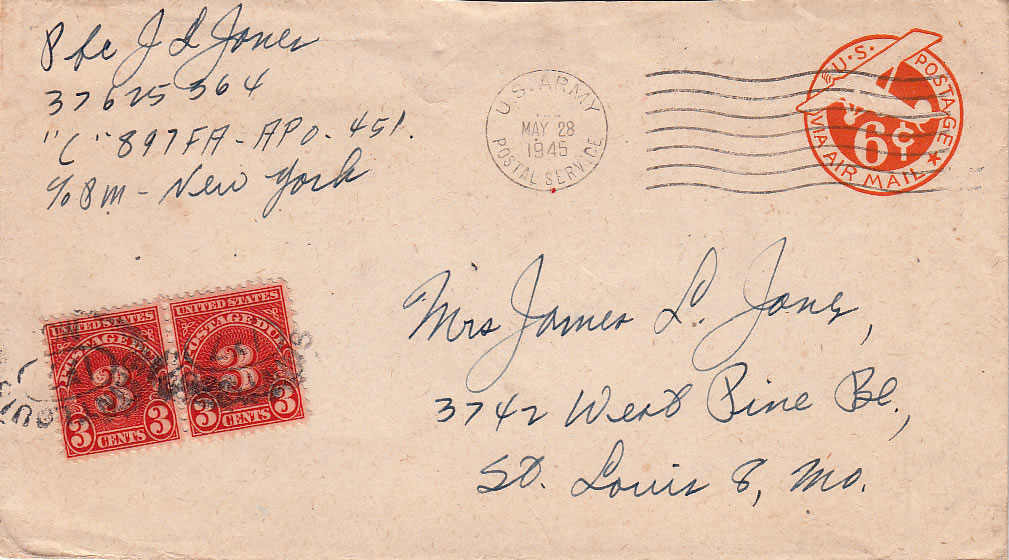 Pfc J L Jones
37625364
"C" 897 FA - APO - 451.
c/o P.M - New York
U.S. ARMY
MAY 28
1945
POSTAL SERVICE
U.S. POSTAGE
6¢
VIA AIR MAIL
UNITED STATES
POSTAGE DUE
3
3 CENTS 3
UNITED STATES
POSTAGE DUE
3
3 CENTS 3
Mrs James L. Jones,
3742 West Pine Bl.,
St. Louis 8, Mo.